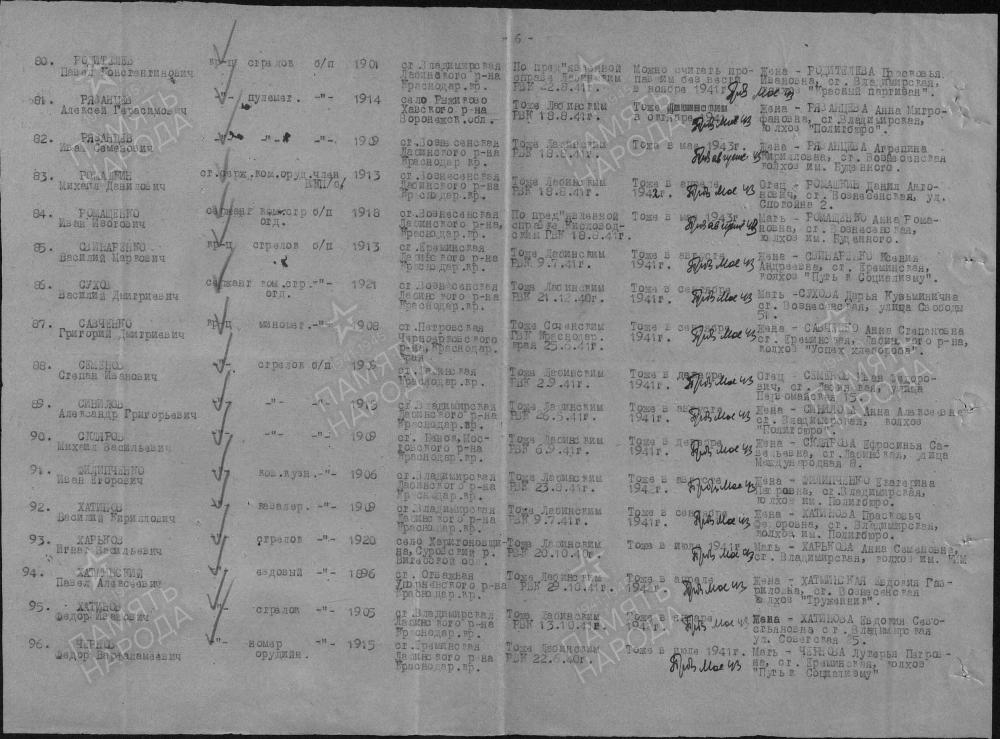 - 6 -
80. РОДИТЕЛЕВ Павел Константинович кр-ц стрелок б/п 1901 ст.Владимирская Лабинского р-на Краснодар.кр. По пред"явленной справке Лабинским РВК 22.8.41г. Можно считать пропавшим без вести в ноябре 1941г. Жена - РОДИТЕЛЕВА Прасковья Ивановна, ст.Владимирская, "Красный партизан".
81. РЯЗАНЦЕВ Алексей Герасимович -"- пулемет. -"- 1914 село Рыжково Хавского р-на Воронежск.обл. Тоже Лабинским РВК 18.8.41г. Тоже Жена - РЯЗАНЦЕВА Анна Митрофановна, ст.Владимирская, колхоз "Политбюро".
82. РЯЗАНЦЕВ Иван Семенович -"- -"- 1909 ст.Вознесенская Лабинского р-на Краснодар.кр. Тоже Лабинским РВК 18.8.41г. Тоже в мае 1943г. Жена - РЯЗАНЦЕВА Агрепина Кирилловна, ст.Вознесенская колхоз им. Буденного.
83. РОМАШКИН Михаил Данилович ст.серж. ком.оруд. член 1913 ст.Вознесенская Лабинского р-на Краснодар.кр. Тоже Лабинским РВК 18.8.41г. Тоже в апреле Отец - РОМАШКИН Данил Антонович, ст.Вознесенская, ул. Спокойна 2.
84. РОМАЩЕНКО Иван Изотович сержант ком.отр отд. б/п 1918 ст.Вознесенская Лабинского р-на, Краснодар.кр. По пред"явленной справке Кисловодским РВК 18.8.41г. Тоже в мае 1943г. Мать - РОМАЩЕНКО Анна Романовна, ст.Вознесенская, колхоз им. Буденного.
85. СВИНАРЕНКО Василий Маркович кр-ц стрелок б/п 1913 ст.Ереминская Лабинского р-на Краснодар.кр. Тоже Лабинским РВК 9.7.41г. Тоже в августе 1941г. Жена - СВИНАРЕНКО Ксения Андреевна, ст.Ереминская, колхоз "Путь к Социализму".
86. СУХОВ Василий Дмитриевич сержант ком.стр. отд. -"- 1921 ст.Вознесенская Лабинского р-на Краснодар.кр. Тоже Лабинским РВК 21.12.40г. Тоже в сентябре 1941г. Мать -СУХОВА Дарья Кузьминична ст.Вознесенская, улица Свободы 51.
87. САВЧЕНКО Григорий Дмитриевич кр-ц миномет. -"- 1908 ст.Петровская Черноерковского р-на, Краснодар. края Тоже РВК Краснодар. края 25.6.41г. Тоже в сентябре 1941г. Жена - САВЧЕНКО Анна Степановна ст.Ереминская, Лабинского р-на, колхоз "Успех хлебороба".
88. СЕМЕНОВ Степан Иванович -"- стрелок б/п ст.Лабинская Краснодар.кр. Тоже Лабинским РВК 2.9.41г. Тоже в декабре 1941г. Отец - СЕМЕНОВ Иван Федорович, ст.Лабинская, улица Первомайская 15.
89. СИНИЛОВ Александр Григорьевич -"- -"- -"- ст.Владимирская Лабинского р-на Краснодар.кр. Тоже Лабинским РВК 26.5.41г. Тоже в августе 1941г. Жена - СИНИЛОВА Анна Алексеевна ст.Владимирская, колхоз "Политбюро".
90. СКЛЯРОВ Михаил Васильевич -"- -"- -"- 1909 Краснодар.кр. Тоже Лабинским РВК 6.9.41г. Тоже в декабре 1941г. Жена - СКЛЯРОВА Ефросинья Савельевна, ст.Лабинская, улица Международная 8.
91. ФИЛИПЧЕНКО Иван Егорович -"- ков.кузн. -"- 1906 ст.Владимирская Лабинского р-на Краснодар.кр. Тоже Лабинским РВК 23.8.41г. Тоже в августе Жена - ФИЛИПЧЕНКО Екатерина Петровна, ст.Владимирская, колхоз им. Политбюро.
92. ХАТИПОВ Василий Кириллович -"- кавалер. -"- 1909 ст.Владимирская Лабинского р-на Краснодар.кр. Тоже Лабинским РВК 9.7.41г. Тоже в сентябре 1941г. Жена - ХАТИПОВА Прасковья Федоровна, ст.Владимирская, колхоз им. Политбюро.
93. ХАРЬКОВ Игнат Васильевич -"- стрелок -"- 1920 село Витебской обл. Тоже Лабинским РВК 20.10.40г. Тоже в июле 1941г. Мать - ХАРЬКОВА Анна Семеновна, ст.Владимирская, колхоз им.
94. ХАТЫНСКИЙ Павел Алексеевич -"- ездовый -"- 1896 ст. Отважная Упорненского р-на Краснодар.кр. Тоже Лабинским РВК 29.10.41г. Тоже в апреле 1942г. Жена - ХАТЫНСКАЯ Евдокия Гавриловна, ст.Вознесенская колхоз "Труженник".
95. ХАТИПОВ Федор Иванович -"- стрелок -"- 1905 ст.Владимирская Лабинского р-на Краснодар.кр. Тоже Лабинским РВК 13.10.41г. Жена - ХАТИПОВА Евдокия Севостьяновна ст.Владимирская ул. Советская 25.
96. ЧЕРНОВ Федор Варфаламеевич -"- номер орудийн. -"- 1915 ст.Ереминская Лабинского р-на Краснодар.кр. Тоже Лабинским РВК 22.6.40г. Тоже в июле 1941г. Мать - ЧЕРНОВА Лукерья Петровна, ст.Ереминская, колхоз "Путь к Социализму"
ПАМЯТЬ НАРОДА